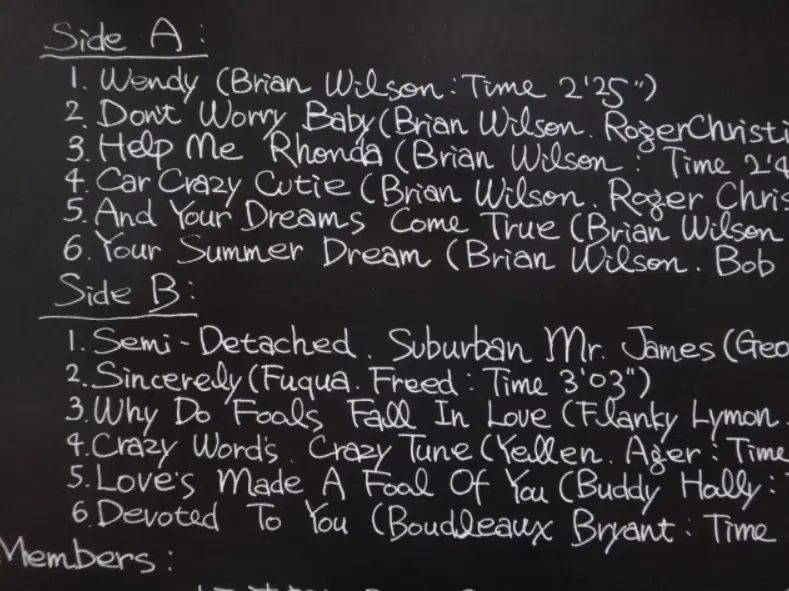 Side A:
1. Wendy (Brian Wilson : Time 2'25")
2. Don't Worry Baby (Brian Wilson. Roger Christi
3. Help Me Rhonda (Brian Wilson : Time 2'4
4. Car Crazy Cutie (Brian Wilson. Roger Chris
5. And Your Dreams Come True (Brian Wilson
6. Your Summer Dream (Brian Wilson. Bob
Side B:
1. Semi-Detached. Suburban Mr. James (Geo
2. Sincerely (Fuqua. Freed : Time 3'03")
3. Why Do Fools Fall In Love (Flanky Lymon.
4. Crazy Word's. Crazy Tune (Yellen. Ager : Time
5. Love's Made A Fool Of You (Buddy Holly :
6. Devoted To You (Boudleaux Bryant : Time
Members :